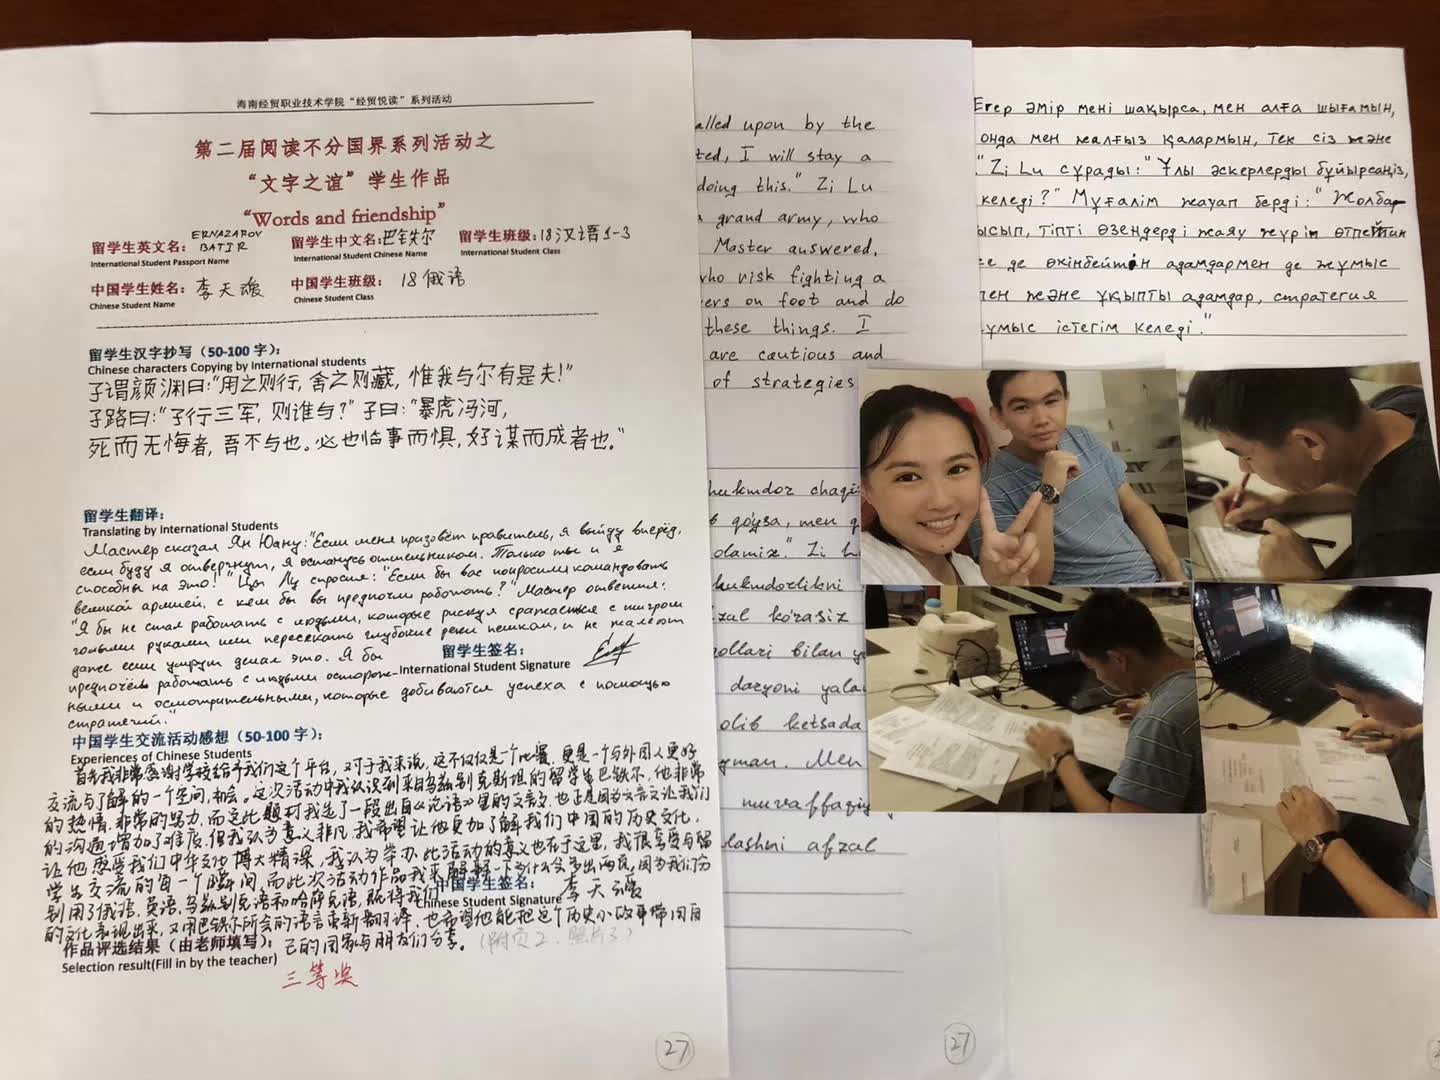 海南经贸职业技术学院“经贸悦读”系列活动
第二届阅读不分国界系列活动之
“文字之谊”学生作品
“Words and friendship”
留学生英文名: ERNAZAROV BATIR
International Student Passport Name
留学生中文名: 巴铁尔
International Student Chinese Name
留学生班级: 18汉语1-3
International Student Class
中国学生姓名: 李天嫒
Chinese Student Name
中国学生班级: 18俄语
Chinese Student Class
留学生汉字抄写（50-100字）:
Chinese characters Copying by International students
子谓颜渊曰:“用之则行, 舍之则藏, 惟我与尔有是夫!”
子路曰:“子行三军, 则谁与?” 子曰:“暴虎冯河,
死而无悔者, 吾不与也。必也临事而惧, 好谋而成者也。”
留学生翻译:
Translating by International Students
Мастер сказал Ян Юану: "Если меня призовёт правитель, я выйду вперёд,
если буду я отвергнут, я останусь отшельником. Только ты и я
способны на это!" Цзы Лу спросил: "Если бы вас попросили командовать
великой армией, с кем бы вы предпочли работать?" Мастер ответил:
"Я бы не стал работать с людьми, которые рискуя сражаться с тигром
голыми руками или пересекать глубокие реки пешком, и не жалеют
даже если умрут делая это. Я бы
предпочёл работать с людьми осторож-
ными и осмотрительными, которые добиваются успеха с помощью
стратегий."
留学生签名:
International Student Signature
中国学生交流活动感想（50-100字）:
Experiences of Chinese Students
首先我非常感谢学校给予我们这个平台, 对于我来说, 这不仅仅是一个比赛, 更是一个与外国人更好
交流与了解的一个空间, 机会。这次活动中我认识到来自乌兹别克斯坦的留学生巴铁尔, 他非常
的热情, 非常的努力, 而这此题材我选了一段出自《论语》里的文言文, 也正是因为文言文让我们
的沟通增加了难度, 但我认为意义非凡, 我希望让他更加了解我们中国的历史文化,
让他感受我们中华文化博大精深, 我认为举办此活动的意义也在于这里, 我很享受与留
学生交流的每一个瞬间, 而此次活动作品我来解释一下为什么会多出两页, 因为我们分
别用了俄语, 英语, 乌兹别克语和哈萨克语, 既将我们
的文化表现出来, 又用巴铁尔所会的语言重新翻译, 也希望他能把这个历史小故事带回自
己的国家与朋友们分享。
(附页2、照片3)
中国学生签名: 李天嫒
Chinese Student Signature
作品评选结果（由老师填写）:
Selection result(Fill in by the teacher)
三等奖
27
alled upon by the
ted, I will stay a
doing this." Zi Lu
a grand army, who
Master answered,
who risk fighting a
vers on foot and do
these things. I
are cautious and
of strategies
hukmdor chaqi
qo'ysa, men
olamiz." Zi
hukmdorlikni
zal ko'rasiz
qollari bilan
daryoni yala
olib ketsada
yman. Men
muvaffaqiy
lashni afzal
27
Егер әмір мені шақырса, мен алға шығамын,
онда мен жалғыз қалармын, тек сіз және
." Zi Lu сұрады: "Ұлы әскерлерді бұйырсаңіз,
келеді?" Мұғалім жауап берді: "Жолбар
ысып, тіпті өзендерді жаяу жүріп өтпейтін
се де өкінбейтін адамдармен де жұмыс
пен және ұқыпты адамдар, стратегия
ұмыс істегім келеді."